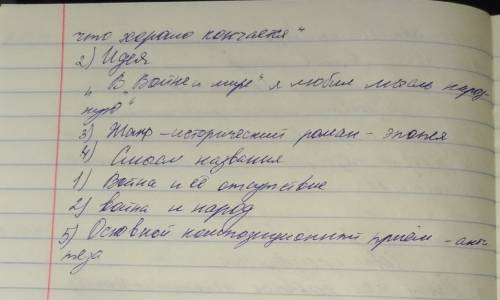 что хорошо кончается"
2) Идея
„В „Войне и мире" я любил мысль народ-
ную"
3) Жанр - исторический роман - эпопея
4) Смысл названия
1) Война и её отсутствие
2) война и народ
5) Основной композиционный приём - анти-
теза